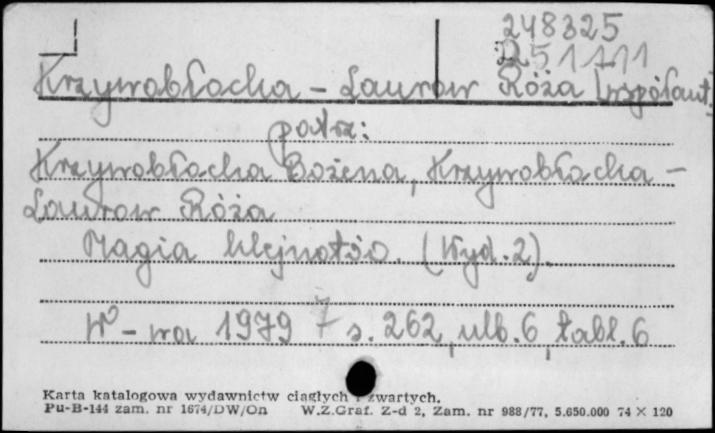 248325
251111
Krzywobłocka - Laurow Róża [współaut.]
patrz:
Krzywobłocka Bożena, Krzywobłocka -
Laurow Róża
Magia klejnotów. (Wyd. 2).
W-wa 1979 s. 262, ulb. 6, tabl. 6
Karta katalogowa wydawnictw ciągłych i zwartych.
Pu-B-144 zam. nr 1674/DW/On W.Z.Graf. Z-d 2, Zam. nr 988/77, 5.650.000 74 × 120